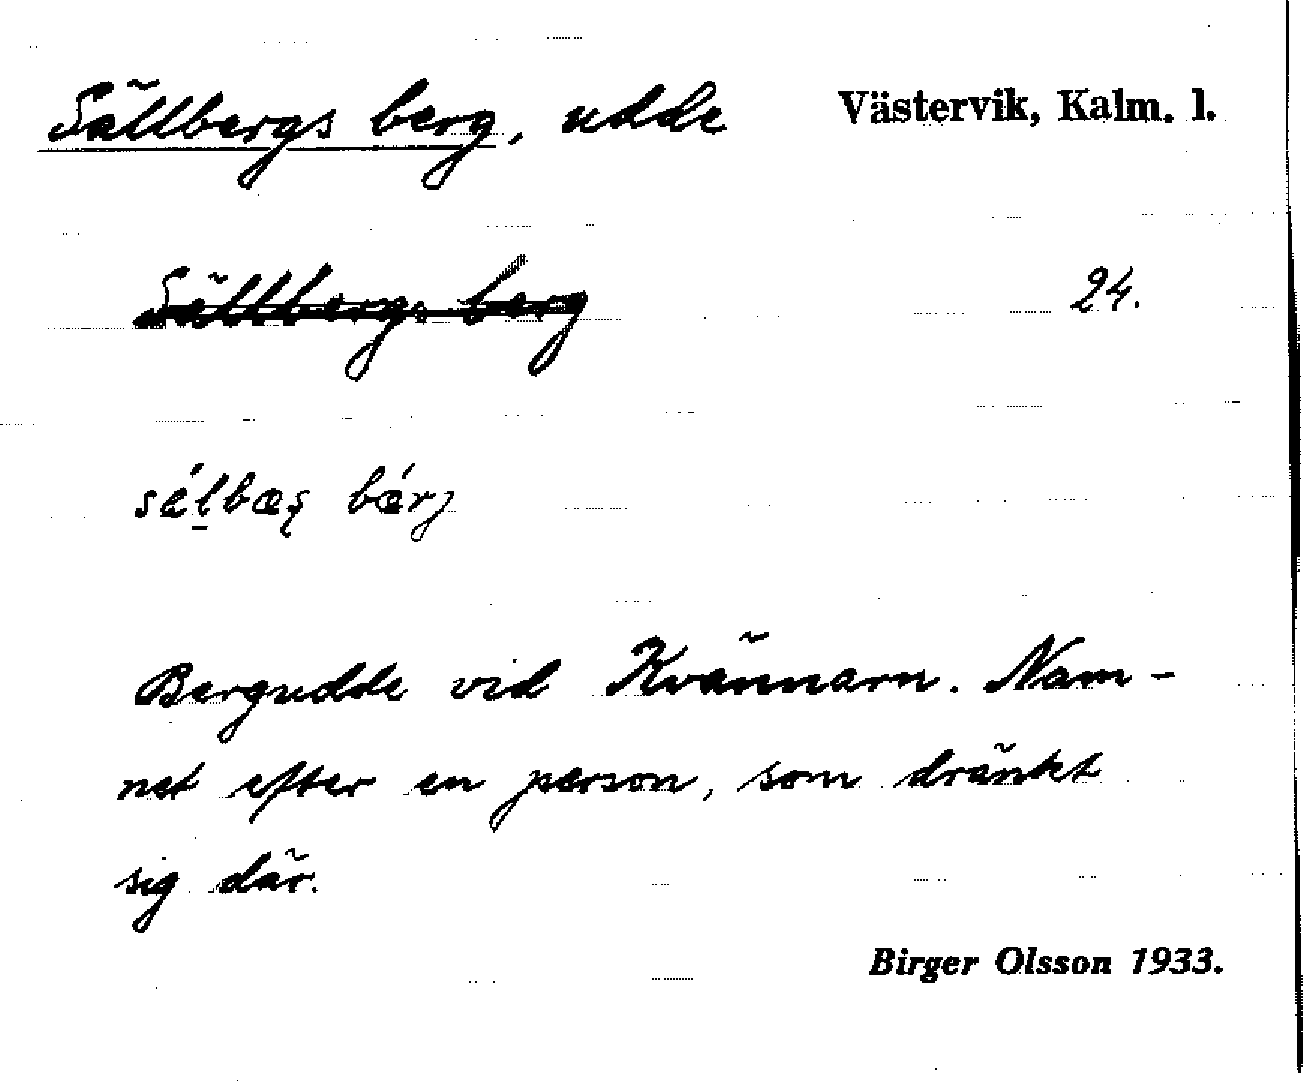 Sällbergs berg, udde Västervik, Kalm. l.
Sällbergs berg 24.
sǽlbæş bǽrj
Bergudde vid Kvännarn. Nam-
net efter en person, som dränkt
sig där.
Birger Olsson 1933.